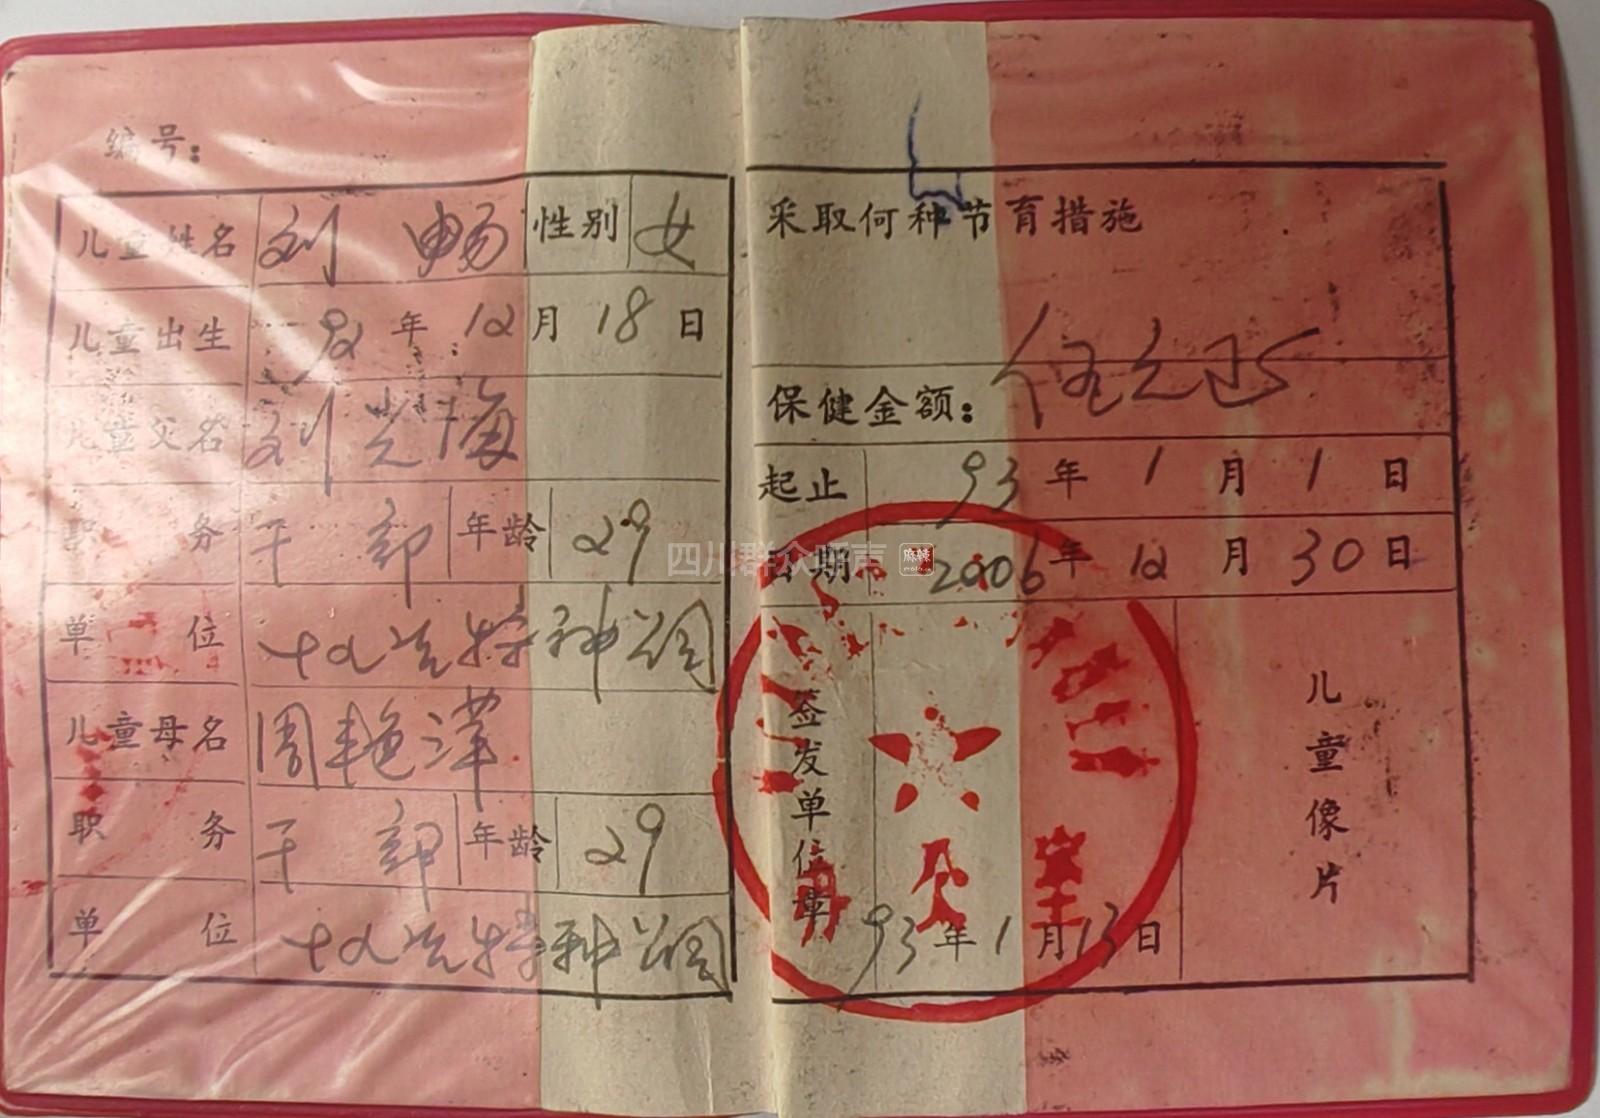 编号:
儿童姓名 刘畅 性别 女
儿童出生 92年12月18日
儿童父名 刘光海
职务 干部 年龄 29
单位 十九冶特种公司
儿童母名 周艳泽
职务 干部 年龄 29
单位 十九冶特种公司
采取何种节育措施
保健金额:
起止 93年1月1日
日期 2006年12月30日
签发单位章
93年1月13日
儿童像片
四川群众呼声 麻辣